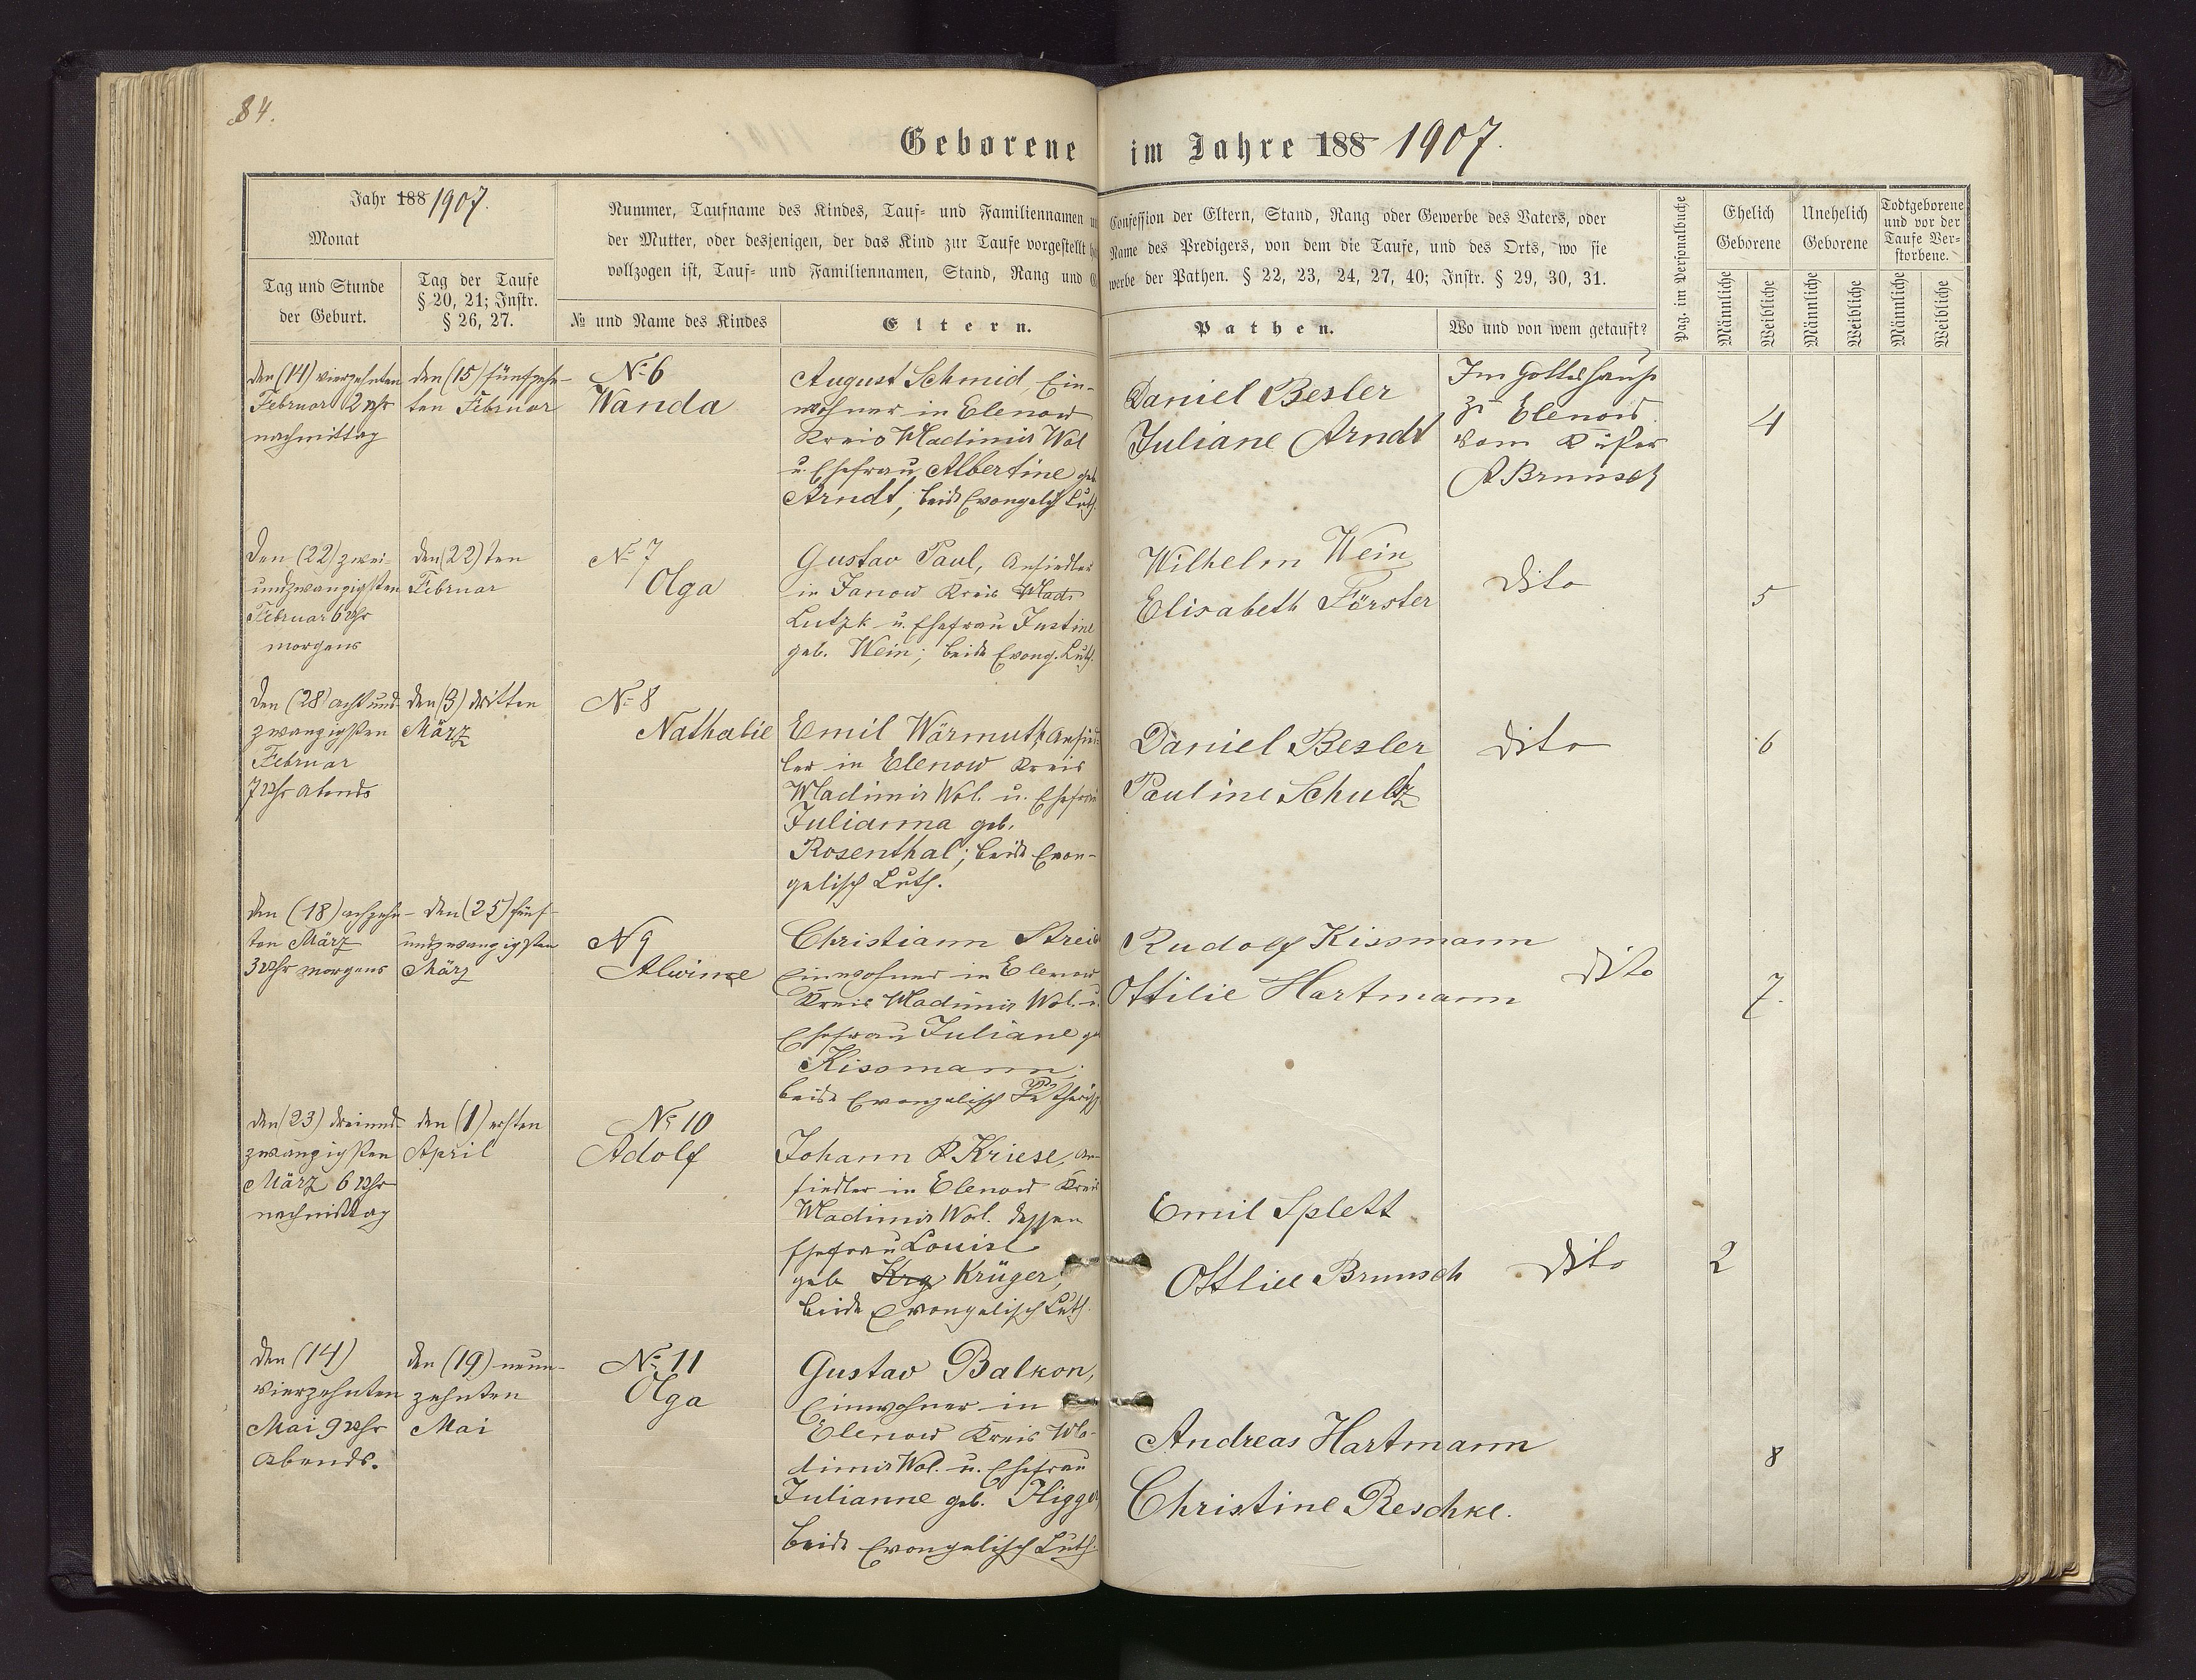 84.
Geborene im Jahre 188 1907.
Jahr 188 1907.
Monat
Tag und Stunde
der Geburt.
Tag der Taufe
§ 20, 21; Instr.
§ 26, 27.
Nummer, Taufname des Kindes, Tauf- und Familiennamen
der Mutter, oder desjenigen, der das Kind zur Taufe vorgestellt
vollzogen ist, Tauf- und Familiennamen, Stand, Rang und
№ und Name des Kindes
Eltern.
Confession der Eltern, Stand, Rang oder Gewerbe des Vaters, oder
Name des Predigers, von dem die Taufe, und des Orts, wo sie
werbe der Pathen. § 22, 23, 24, 27, 40; Instr. § 29, 30, 31.
Pathen.
Wo und von wem getauft?
Pag. im Personalbuche
Ehelich
Geborene
Unehelich
Geborene
Todtgeborene
und vor der
Taufe Ver-
storbene.
Männliche
Weibliche
Männliche
Weibliche
Männliche
Weibliche
den (14) vierzehnten
Februar 2 Uhr
nachmittag
den (15) fünfzehn-
ten Februar
№ 6
Wanda
August Schmid, Ein-
wohner in Elenow
Kreis Wladimir Wol
u. Ehefrau Albertine geb
Arndt, beide Evangelisch Luth.
Daniel Besler
Juliane Arndt
Im Gotteshause
zu Elenow
vom Küster
A Brunsch
4
Den (22) zwei-
undzwanzigsten
Februar 6 Uhr
morgens
den (22) ten
Februar
№ 7
Olga
Gustav Paul, Ansiedler
in Janow Kreis Wlad
Lutzk u. Ehefrau Justine
geb. Wein; beide Evang. Luth.
Wilhelm Wein
Elisabeth Förster
Dito
5
Den (28) achtund-
zwanzigsten
Februar
7 Uhr Abends
den (3) dritten
März
№ 8
Nathalie
Emil Wärmuth, Ansied-
ler in Elenow Kreis
Wladimir Wol. u. Ehefrau
Julianna geb.
Rosenthal; beide Evan-
gelisch Luth.
Daniel Besler
Pauline Schultz
Dito
6
den (18) achzehn-
ten März
3 Uhr morgens
den (25) fünf-
undzwanzigsten
März
N 9
Alwine
Christiann
Einwohner in Elenow
Kreis Wladimir Wol. u.
Ehefrau Juliane
Kissmann;
beide Evangelisch Lutherisch
Rudolf Kissmann
Ottilie Hartmann
Dito
7.
den (23) dreiund-
zwanzigsten
März 6 Uhr
nachmittag
den (1) ersten
April
№ 10
Adolf
Johann Kriese, An-
siedler in Elenow Kreis
Wladimir Wol. dessen
Ehefrau Louise
geb Krg Krüger,
beide Evangelisch Luth.
Emil Splett
Ottilie Brunsch
Dito
2
den (14)
vierzehnten
Mai 9 Uhr
Abends.
den (19) neun-
zehnten
Mai
№ 11
Olga
Gustav Balkon,
Einwohner in
Elenow Kreis Wla-
dimir Wol. u. Ehefrau
Julianne geb.
beide Evangelisch Luth.
Andreas Hartmann
Christine Reschke.
8